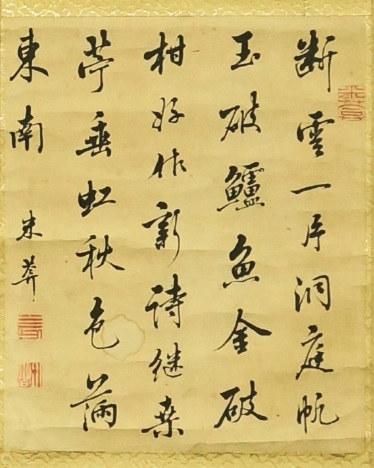 斷雲一片洞庭帆
玉破鱸魚金破
柑好作新詩継桑
苧垂虹秋色滿
東南 米芾